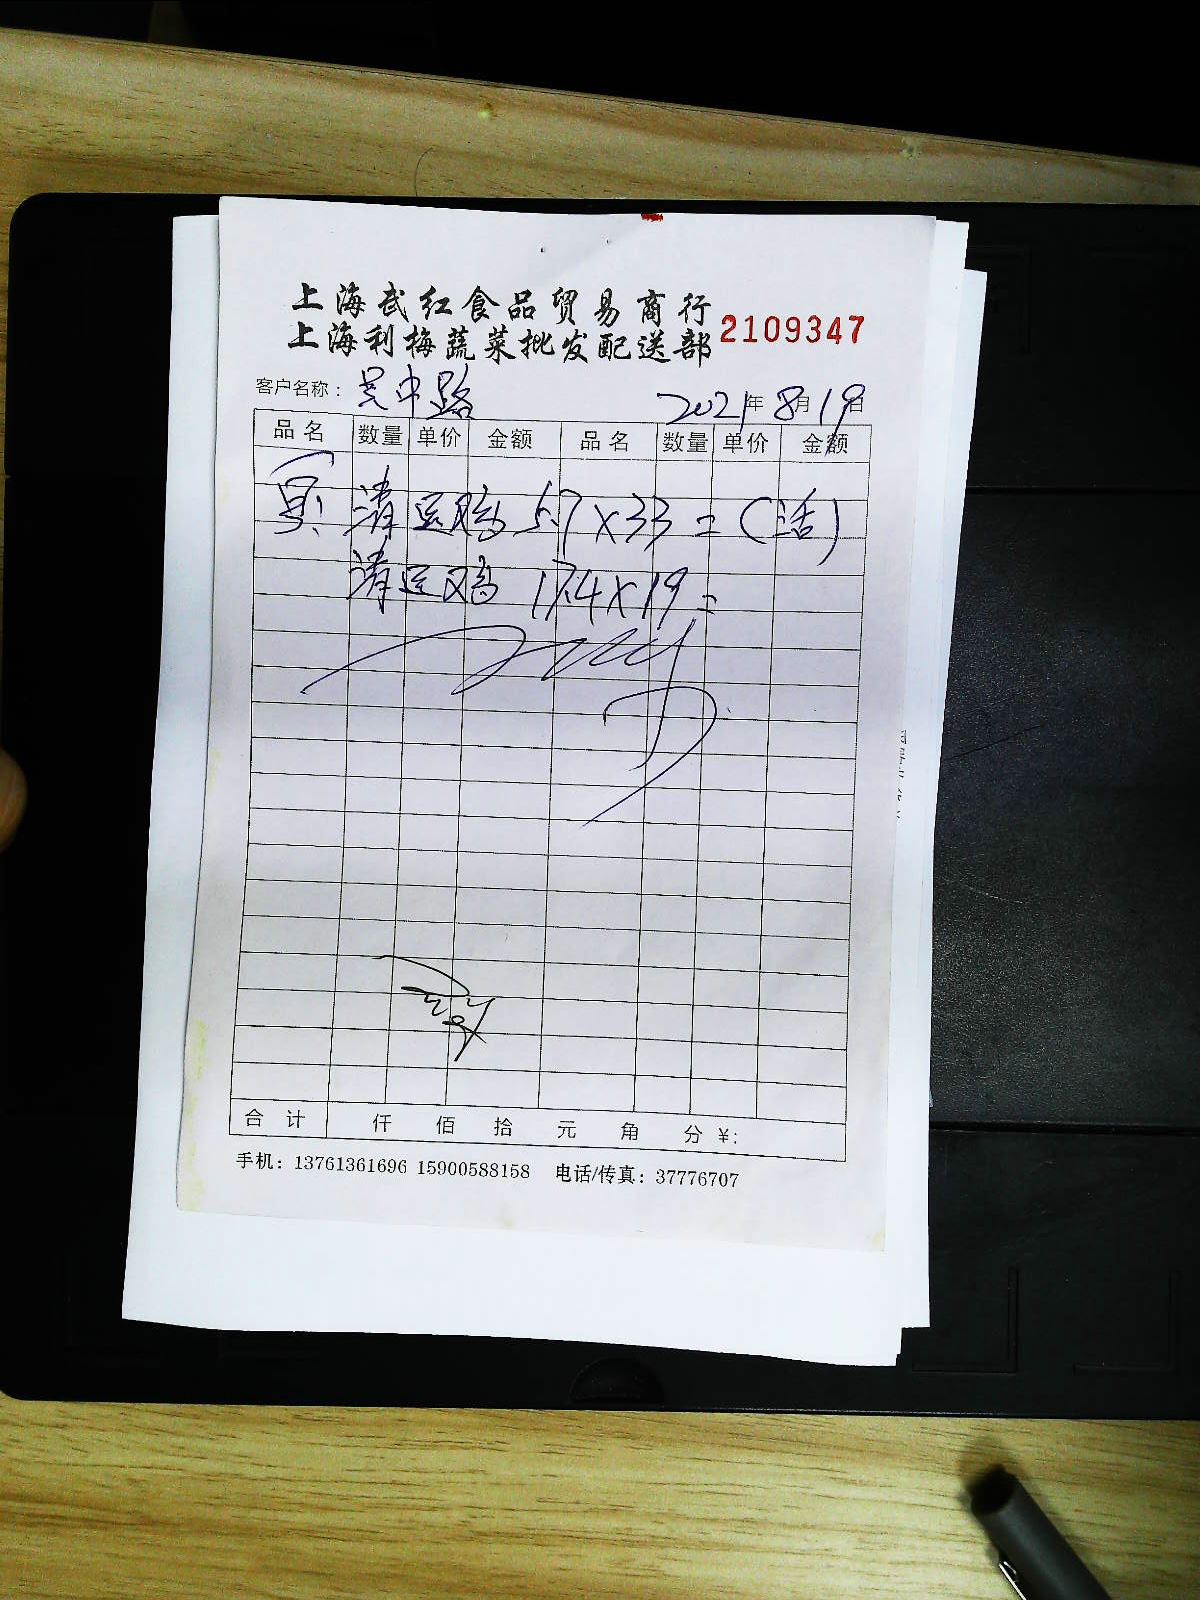 上海武红食品贸易商行
上海利梅蔬菜批发配送部 2109347
客户名称：吴中路 2021年8月19日
品名 数量 单价 金额 品名 数量 单价 金额
清远鸡 5.7×33=(活)
清远鸡 17.4×19=
合计 仟 佰 拾 元 角 分 ¥:
手机：13761361696 15900588158 电话/传真：37776707